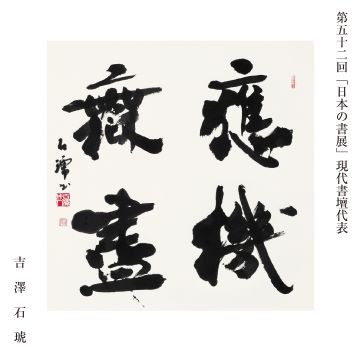 第五十二回「日本の書展」現代書壇代表
應機
無盡
石琥書
吉澤石琥